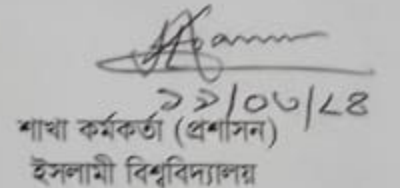 ২২/০৬/২৪
শাখা কর্মকর্তা (প্রশাসন)
ইসলামী বিশ্ববিদ্যালয়